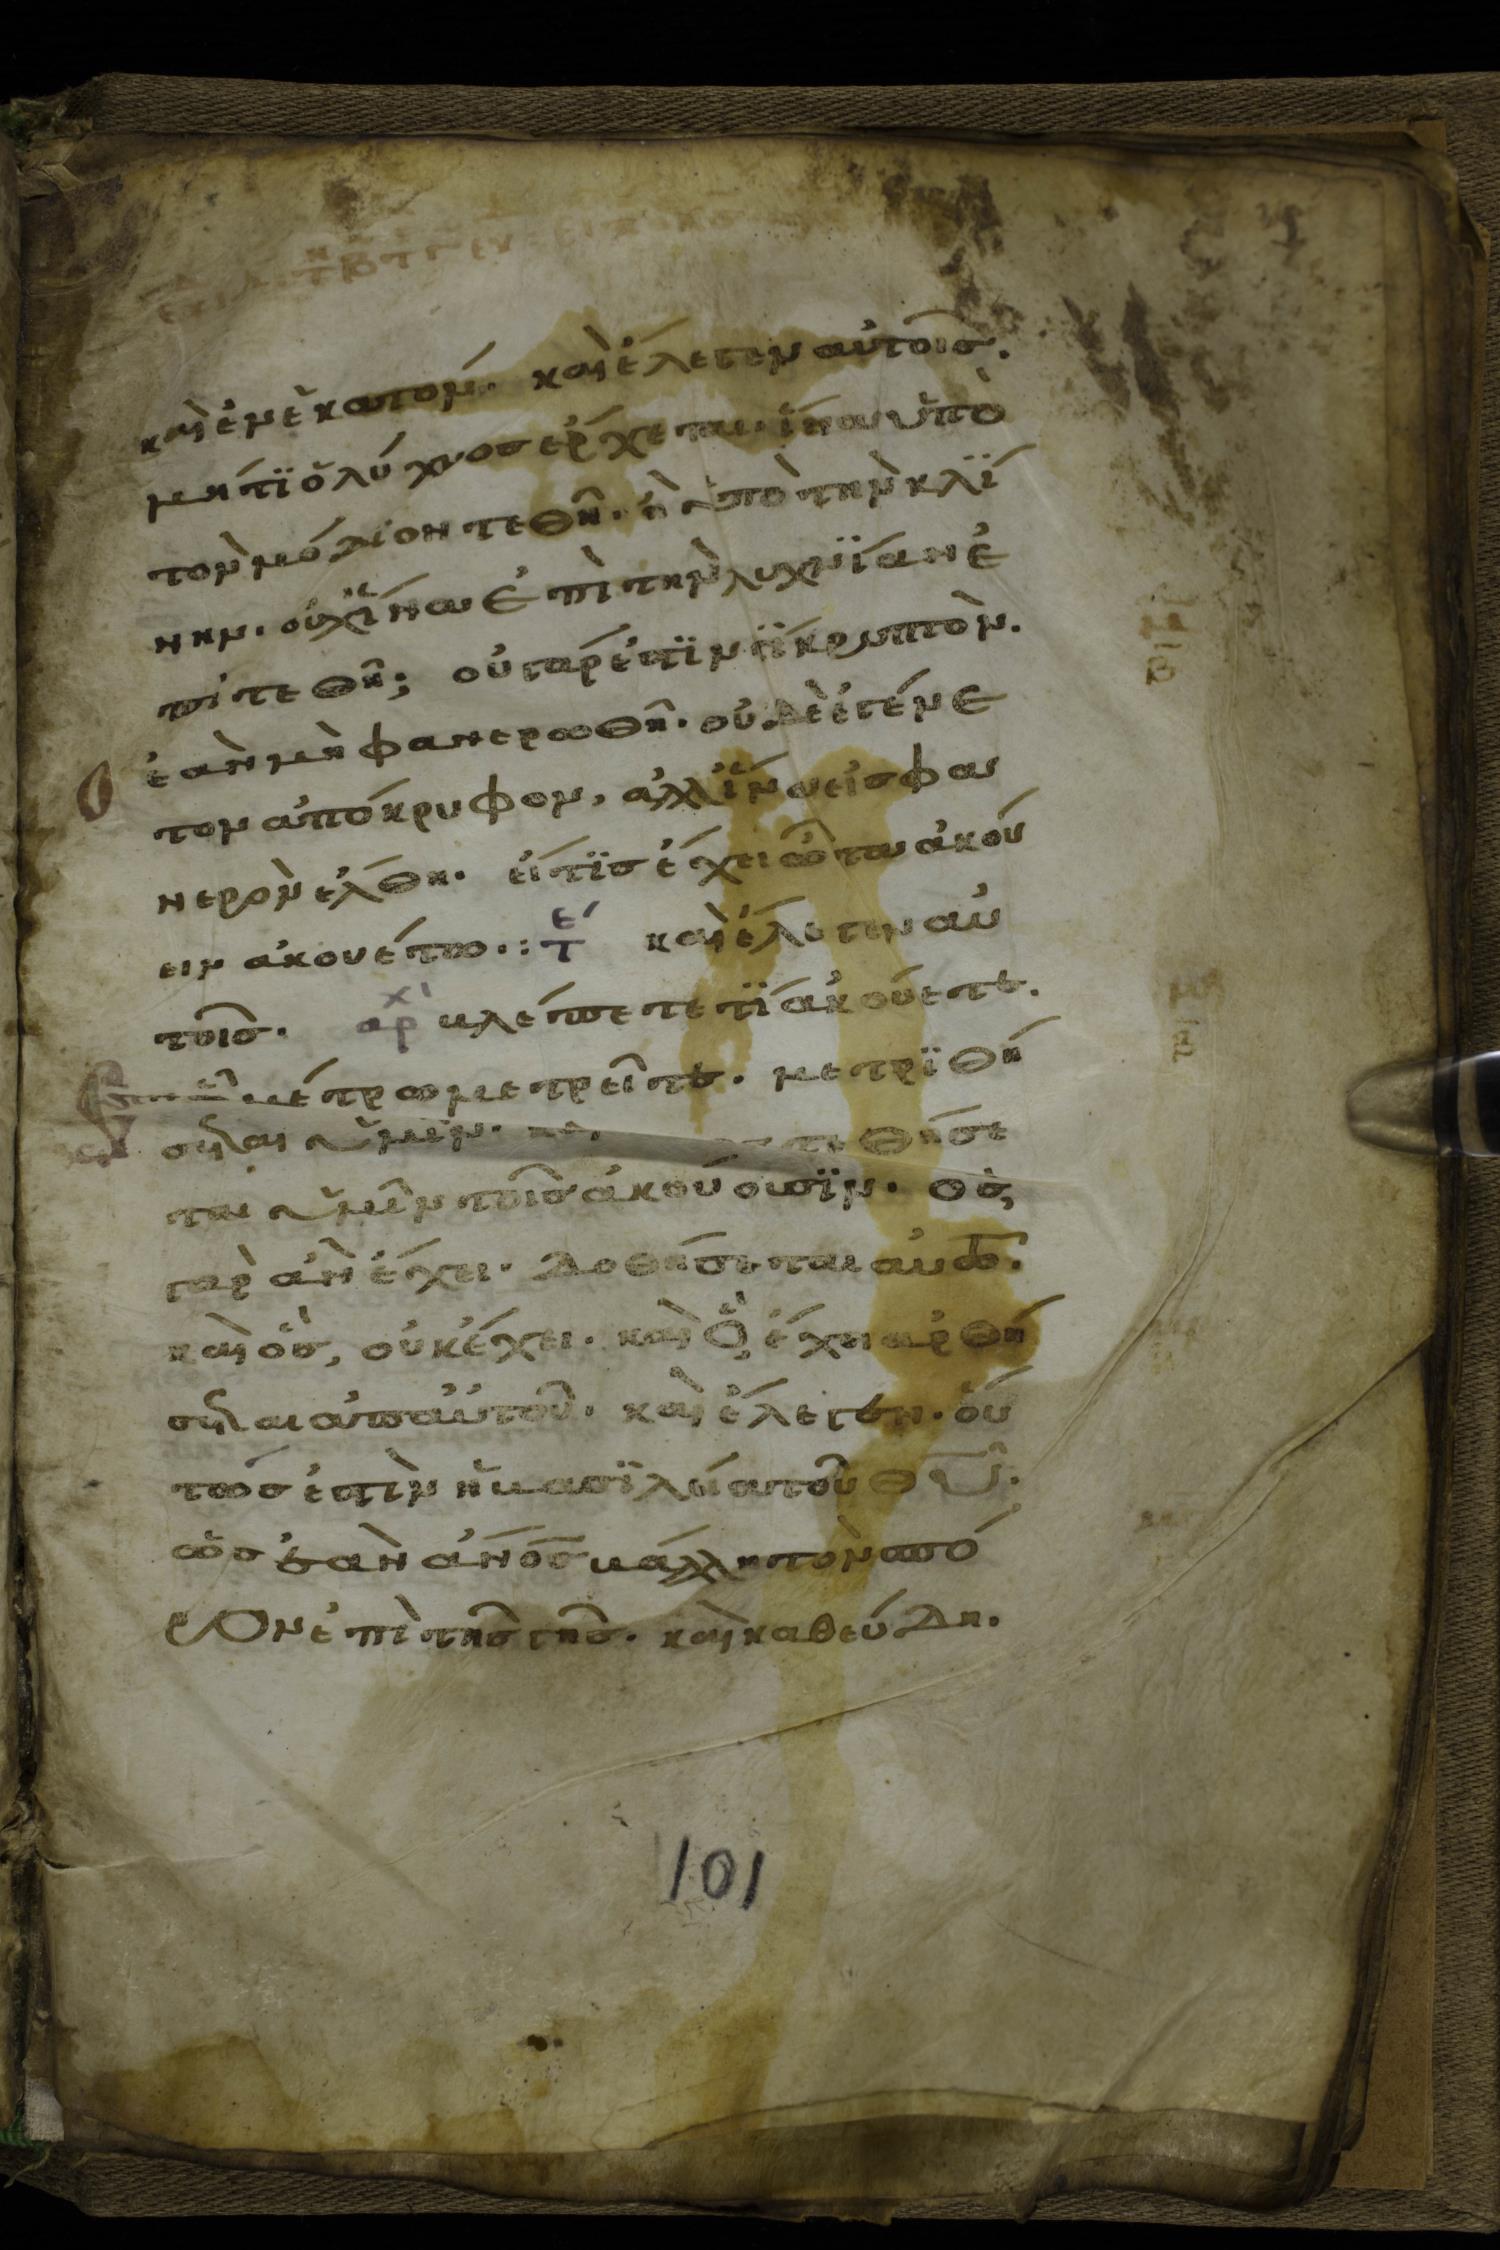 καὶ ἐν ἑκατόν. καὶ ἔλεγεν αὐτοῖς.
μήτϊ ὁ λύχνος ἔρχεται. ἵνα ὑπὸ
τὸν μόδιον τεθῆ. ἢ ὑπὸ τὴν κλΐ
νην. οὐχ ἵνα ἐπὶ τὴν λυχνΐαν ἐ
πιτεθῆ; οὐ γάρ ἐστϊν τΐ κρυπτὸν.
ἐὰν μὴ φανερωθῆ. οὐδὲ ἐγένε
το ἀπόκρυφον, ἀλλ' ἵνα εἰς φα
νερὸν ἔλθη. εἴ τϊς ἔχει ὦτα ἀκού
ειν ἀκουέτω.: τέ καὶ ἔλεγεν αὐ
τοῖς. αρχι βλέπετε τΐ ἀκούετε.
μέτρω μετρεῖτε. μετρϊθή
σεται ὑμῖν. τεθήσε
ται ὑμῖν τοῖς ἀκούουσϊν. ὃς
γὰρ ἀν ἔχει. δοθήσεται αὐτῶ.
καὶ ὃς, οὐκ ἔχει. καὶ ὃ ἔχει ἀρθή
σεται ἀπ' αὐτοῦ. καὶ ἔλεγεν. οὕ
τως ἐστὶν ἡ βασϊλεία τοῦ θ̅υ̅.
ὡς ἐὰν ἄν̅ο̅ς βάλλη τὸν σπό
ρον ἐπὶ τῆς γῆς. καὶ καθεύδη.
101